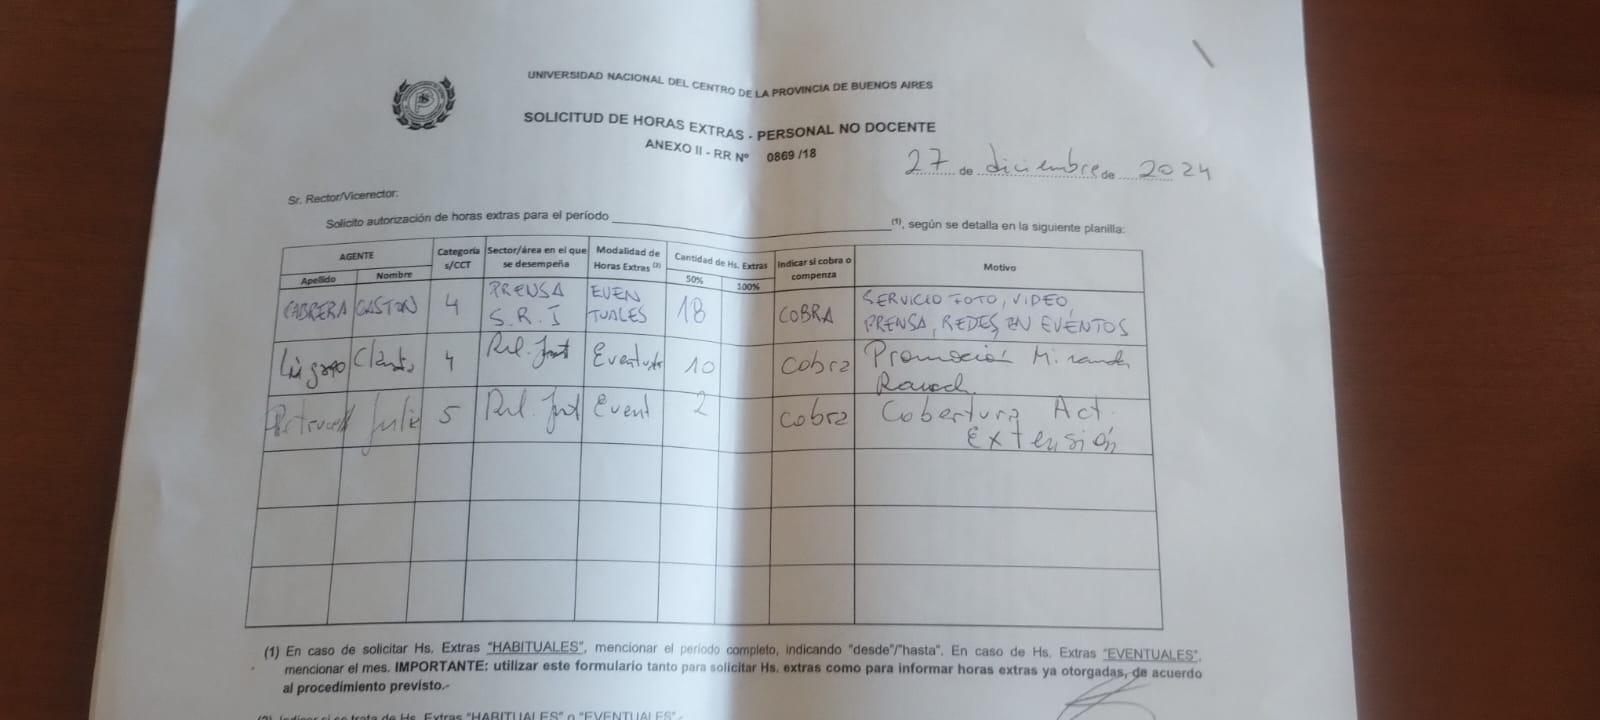 UNIVERSIDAD NACIONAL DEL CENTRO DE LA PROVINCIA DE BUENOS AIRES
SOLICITUD DE HORAS EXTRAS - PERSONAL NO DOCENTE
ANEXO II - RR Nº 0869 /18
27 de diciembre de 2024
Sr. Rector/Vicerector:
Solicito autorización de horas extras para el período (1), según se detalla en la siguiente planilla:
AGENTE
Apellido Nombre
Categoría s/CCT
Sector/área en el que se desempeña
Modalidad de Horas Extras (2)
Cantidad de Hs. Extras
50% 100%
Indicar si cobra o compenza
Motivo
CABRERA GASTON 4 PRENSA S.R.I EVEN TUALES 18 COBRA SERVICIO FOTO, VIDEO, PRENSA, REDES, EN EVENTOS
4 Rel. 10 Cobra Promoción
Rauch
Julie 5 Rel. Event 2 Cobra Cobertura Act. Extensión
(1) En caso de solicitar Hs. Extras "HABITUALES", mencionar el período completo, indicando "desde"/"hasta". En caso de Hs. Extras "EVENTUALES",
mencionar el mes. IMPORTANTE: utilizar este formulario tanto para solicitar Hs. extras como para informar horas extras ya otorgadas, de acuerdo
al procedimiento previsto.-
(2) Indicar si se trata de Hs. Extras "HABITUALES" o "EVENTUALES".-